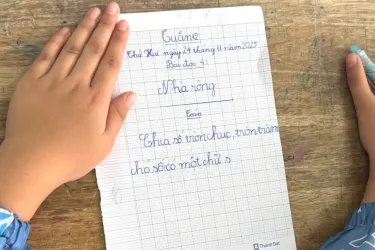 Tuần 12
Thứ Hai ngày 24 tháng 11 năm 2025
Bài đọc 4:
Nhà rông
Toán
Chia số tròn chục, tròn trăm
cho số có một chữ s